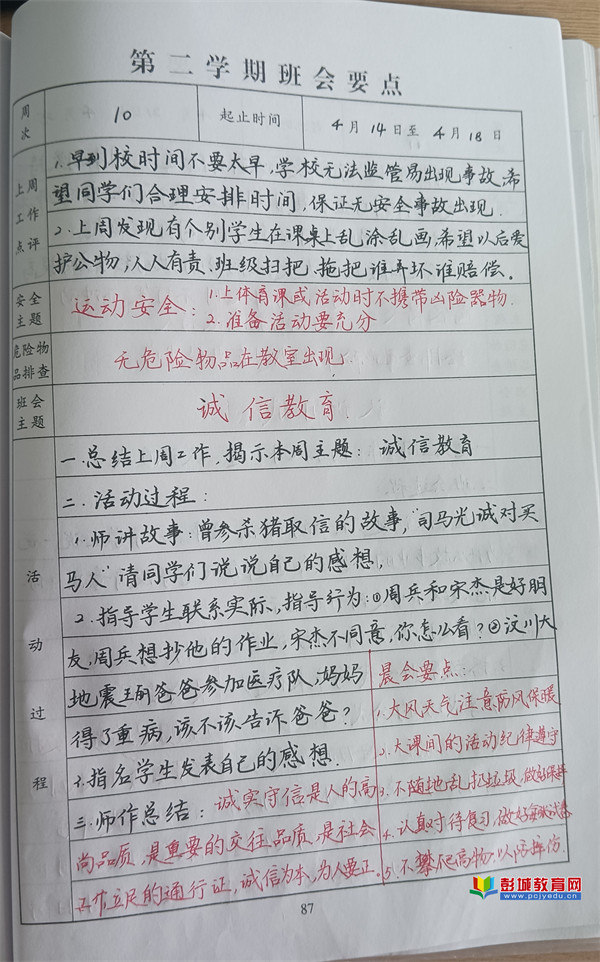 第二学期班会要点
周次 10 起止时间 4月14日至4月18日
上周工作点评
1.早到校时间不要太早,学校无法监管易出现事故,希
望同学们合理安排时间,保证无安全事故出现.
2.上周发现有个别学生在课桌上乱涂乱画,希望以后爱
护公物,人人有责.班级扫把、拖把谁弄坏谁赔偿。
安全主题 运动安全: 1.上体育课或活动时不携带凶险器物.
2.准备活动要充分
危险物品排查 无危险物品在教室出现.
班会主题 诚信教育
活动过程
一.总结上周工作,揭示本周主题:诚信教育
二.活动过程:
1.师讲故事:曾参杀猪取信的故事,"司马光诚对买
马人"请同学们说说自己的感想,
2.指导学生联系实际,指导行为:①周兵和宋杰是好朋
友,周兵想抄他的作业,宋杰不同意,你怎么看?②汶川大
地震王丽爸爸参加医疗队,妈妈
得了重病,该不该告诉爸爸?
3.指名学生发表自己的感想.
三.师作总结:诚实守信是人的高
尚品质,是重要的交往品质,是社会
工作立足的通行证,诚信为本,为人要正。
晨会要点:
1.大风天气注意防风保暖
2.大课间的活动纪律遵守
3.不随地乱扔垃圾,做好保洁
4.认真对待复习,做好
5.不攀爬高物,以防摔伤
彭城教育网
www.pcjyedu.cn
87